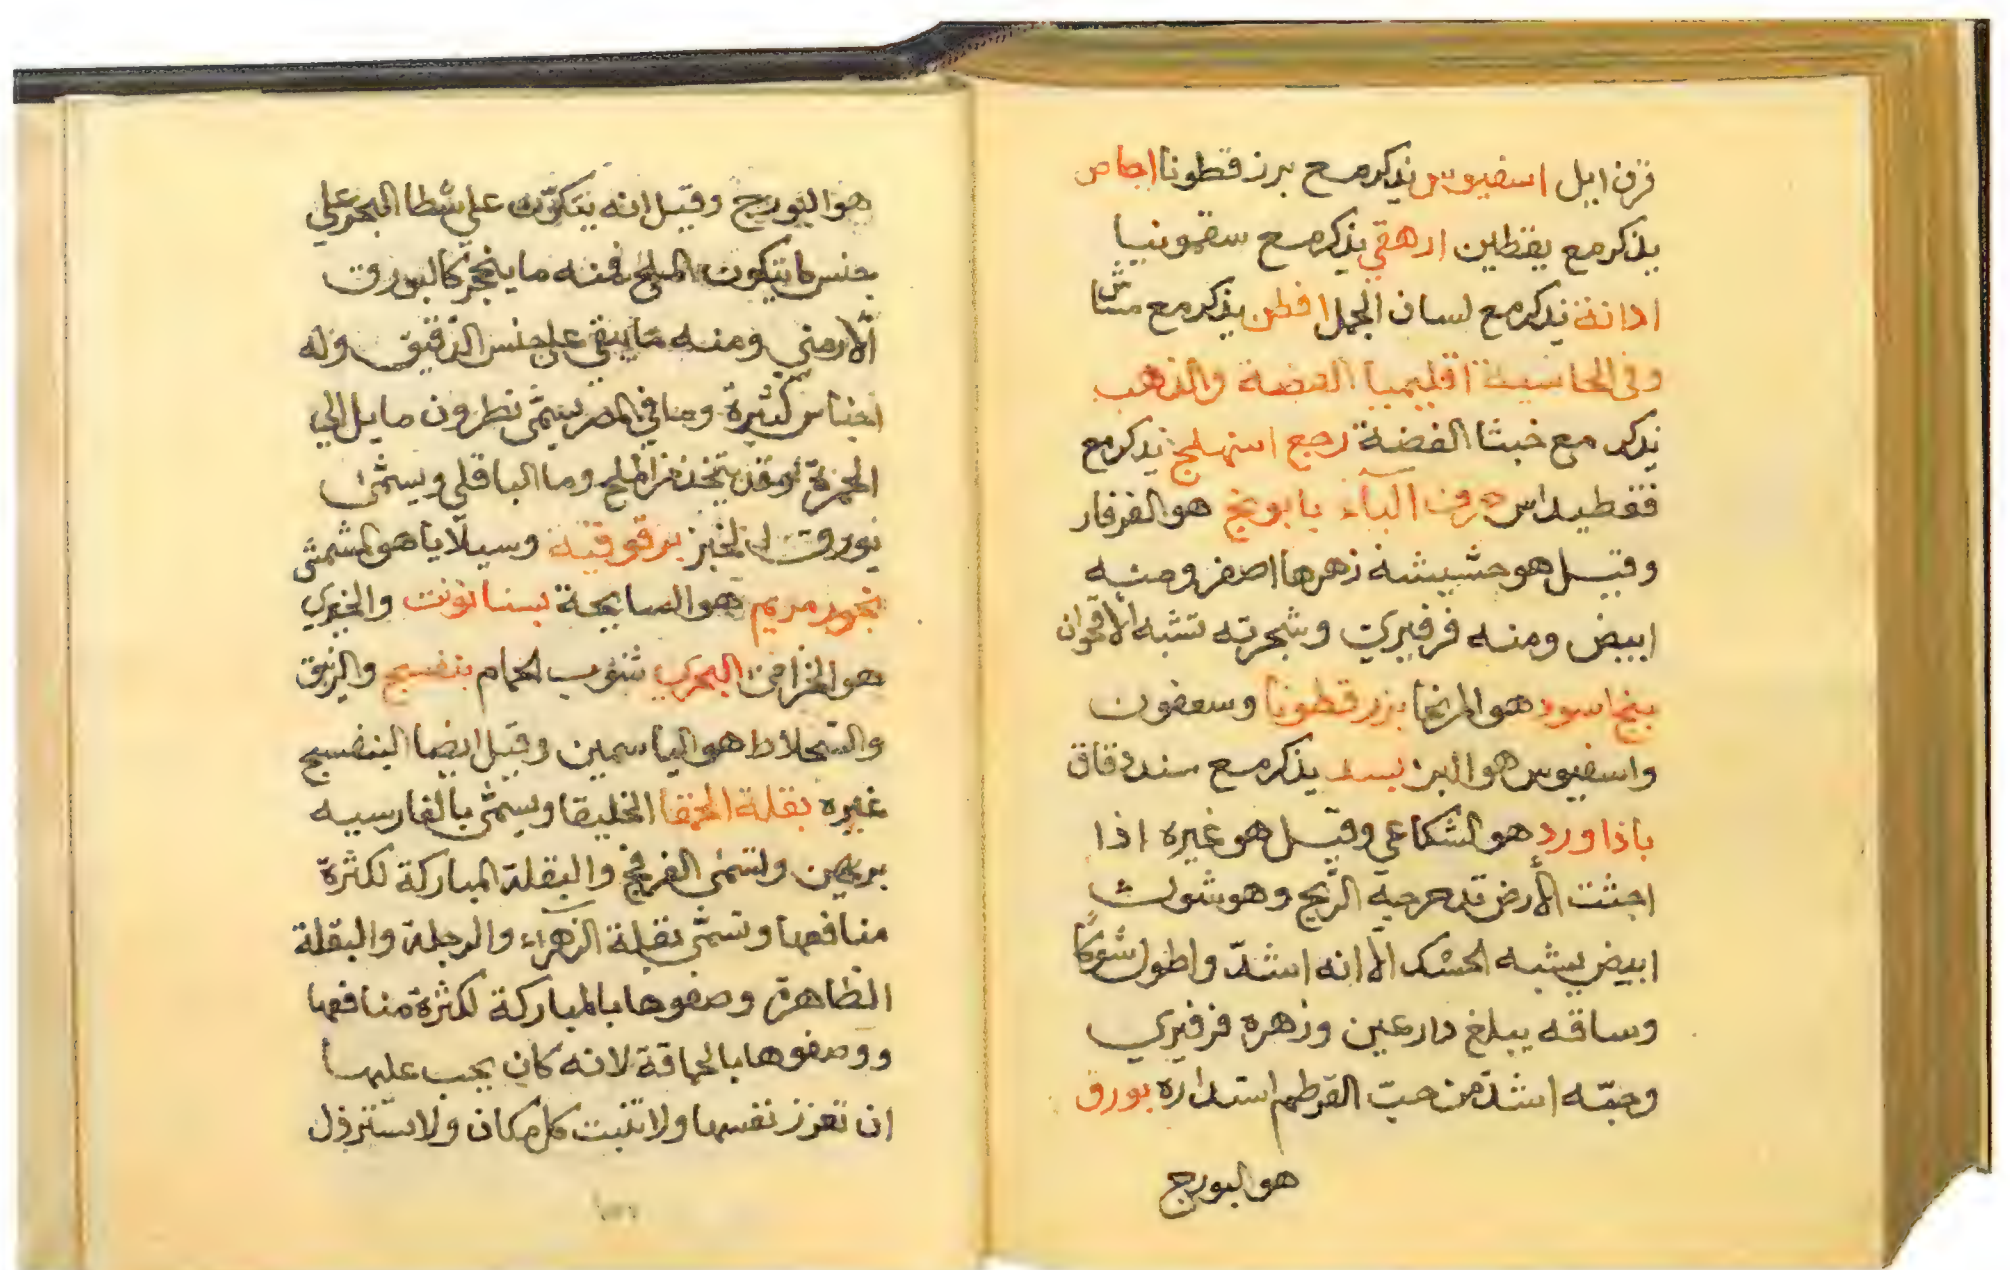 قرن ايل اسفيوس يذكر مع برز قطونا اجاص
يذكر مع يقطين ارهقي يذكر مع سقمونيا
اذانة يذكر مع لسان الجمل افطن يذكر مع
وفي الحاشية اقليميا الفضة والذهب
يذكر مع خبثا الفضة رجع اسنهلج يذكر مع
فقطيداس حرف الباء بابونج هو القرفار
وقيل هو حشيشة زهرها اصفر ومنه
ابيض ومنه فرفيري وشجرته تشبه الأقحوان
بنج اسود هو المرنجا بزر قطونا وسعفون
واسفيوس هو البن بسد يذكر مع سندد قاق
باذاورد هو الشكاعي وقيل هو غيره اذا
اجثت الأرض قد حرجيه الريح وهو شوك
ابيض يشبه الحسك الا انه اشدّ واطول شوكًا
وساقه يبلغ دارعين وزهره فرفيري
وحبّه اشدّ من حبّ القرطم استداره بورق
هو البورج
هو البورج وقيل انه يتكوّن على شطا البحر على
جنس ما يتكون الملح فمنه ما ينحجر كالبورق
الأرمني ومنه ما يبقى على جنس الدقيق وله
اجناس كثيرة وما في المصر يسمّى نطرون مايل الى
الحمرة وقد يتخذ من الملح وما الباقلي ويسمّى
بورق الخبز برقوقية وسيلايا هو المشمش
بخور مريم هو السابجة بسنانونت والخيري
هو الخزامى البحري شنوب الحمام بنفسج والزنبق
والسجلاط هو الياسمين وقيل ايضا البنفسج
غيره بقلة الحمقا الخليقا ويسمّى بالفارسيه
بربهن وتسمى الفرفخ والبقلة المباركة لكثرة
منافعها وتسمّى بقلة الزهراء والرجلة والبقلة
الطاهرة وصفوها بالمباركة لكثرة منافعها
ووصفوها بالحماقة لانه كان يجب عليها
ان تعزز نفسها ولا تنبت كل مكان ولا تسترذل